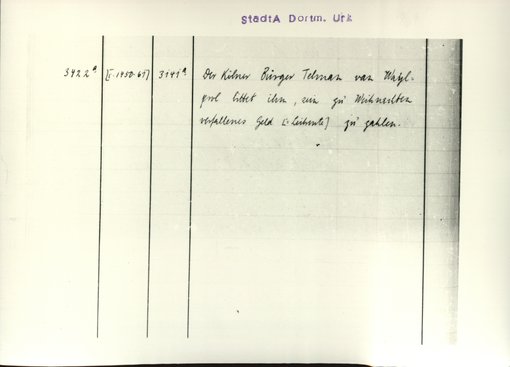 StadtA Dortm. Urk
3422a [z. 1450-61] 3141a Der Kölner Bürger Telman van
pol bittet ihn, sein zu Weihnachten
verfallenes Geld [= Leibrente] zu zahlen.